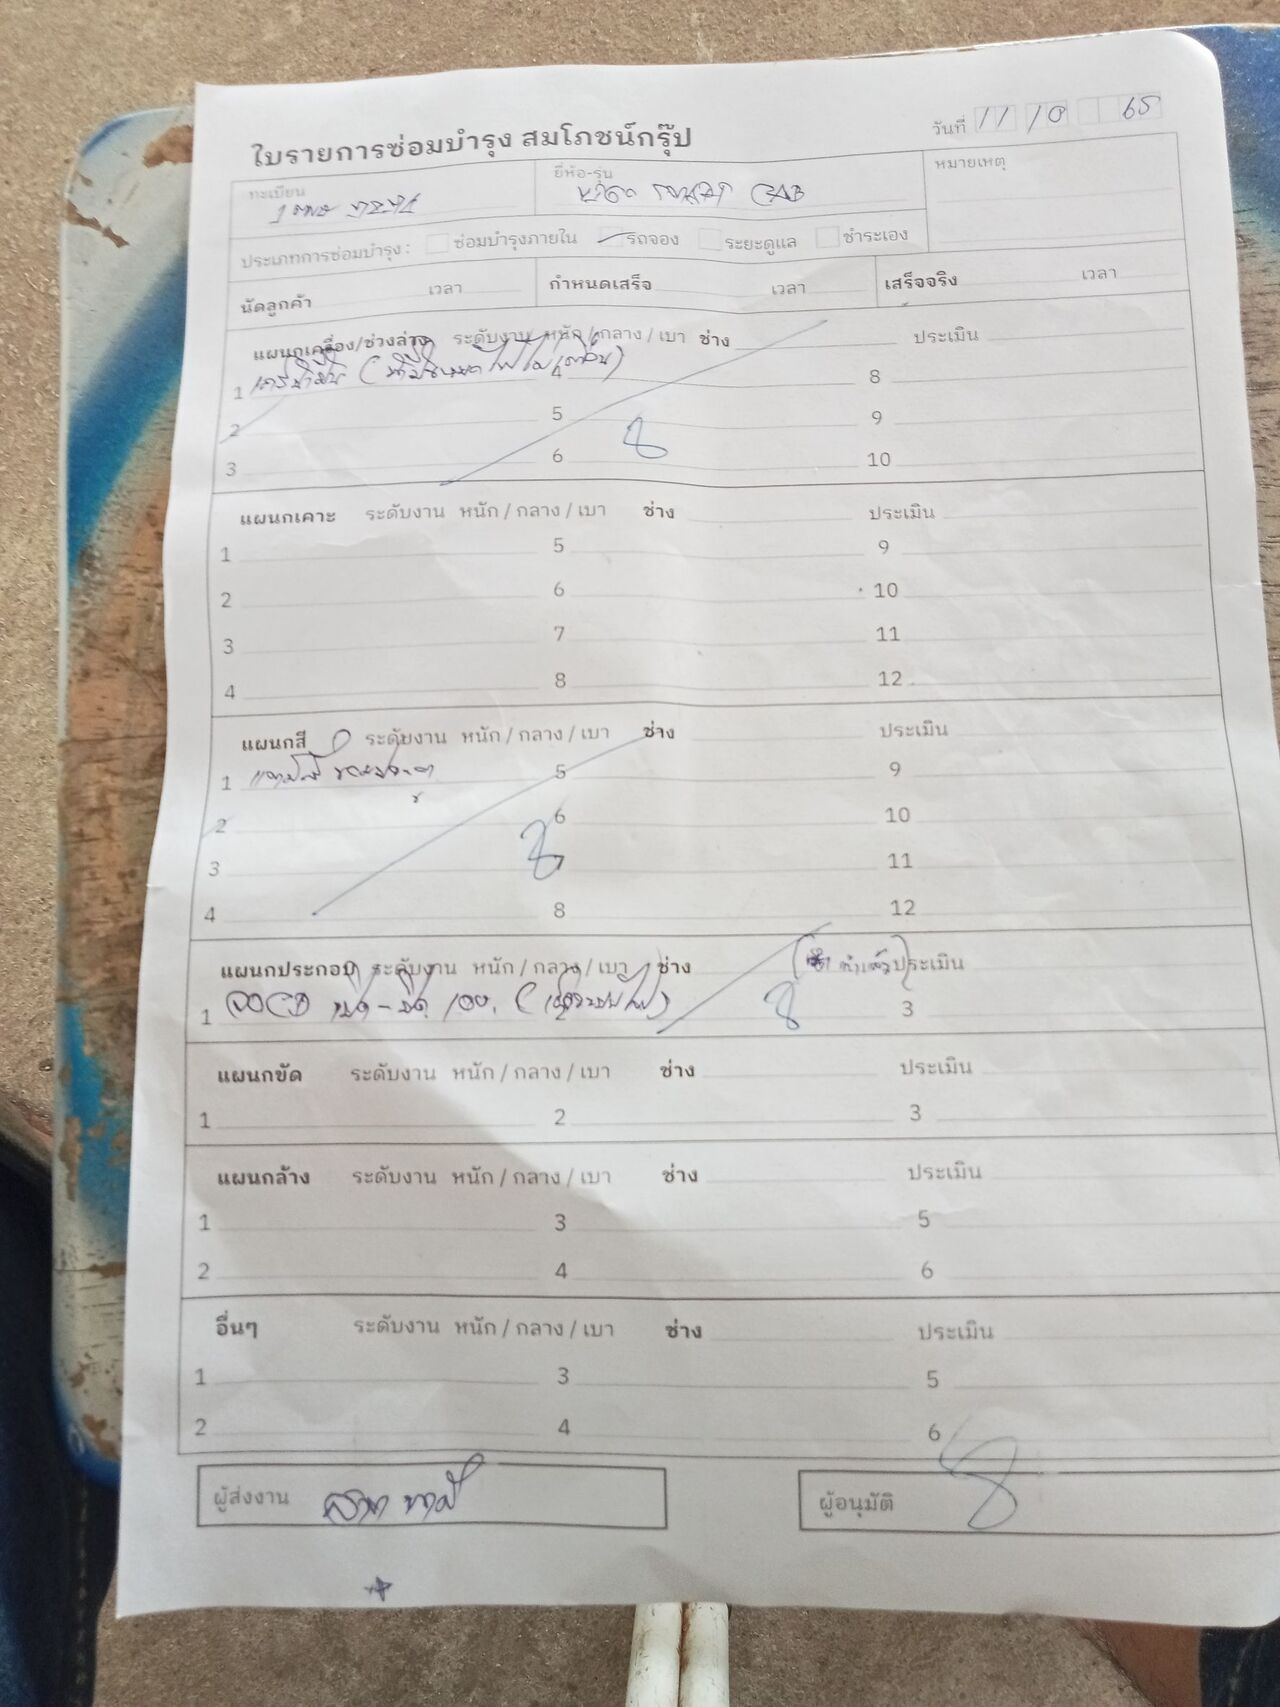 ใบรายการซ่อมบำรุง สมโภชน์กรุ๊ป
วันที่ 11 10 65
ทะเบียน
ยี่ห้อ-รุ่น CAB
หมายเหตุ
ประเภทการซ่อมบำรุง : ซ่อมบำรุงภายใน รถจอง ระยะดูแล ชำระเอง
นัดลูกค้า เวลา กำหนดเสร็จ เวลา เสร็จจริง เวลา
แผนกเครื่อง/ช่วงล่าง ระดับงาน หนัก / กลาง / เบา ช่าง ประเมิน
1 4 8
2 5 9
3 6 10
แผนกเคาะ ระดับงาน หนัก / กลาง / เบา ช่าง ประเมิน
1 5 9
2 6 10
3 7 11
4 8 12
แผนกสี ระดับงาน หนัก / กลาง / เบา ช่าง ประเมิน
1 5 9
2 6 10
3 7 11
4 8 12
แผนกประกอบ ระดับงาน หนัก / กลาง / เบา ช่าง ประเมิน
1 3
แผนกขัด ระดับงาน หนัก / กลาง / เบา ช่าง ประเมิน
1 2 3
แผนกล้าง ระดับงาน หนัก / กลาง / เบา ช่าง ประเมิน
1 3 5
2 4 6
อื่นๆ ระดับงาน หนัก / กลาง / เบา ช่าง ประเมิน
1 3 5
2 4 6
ผู้ส่งงาน
ผู้อนุมัติ